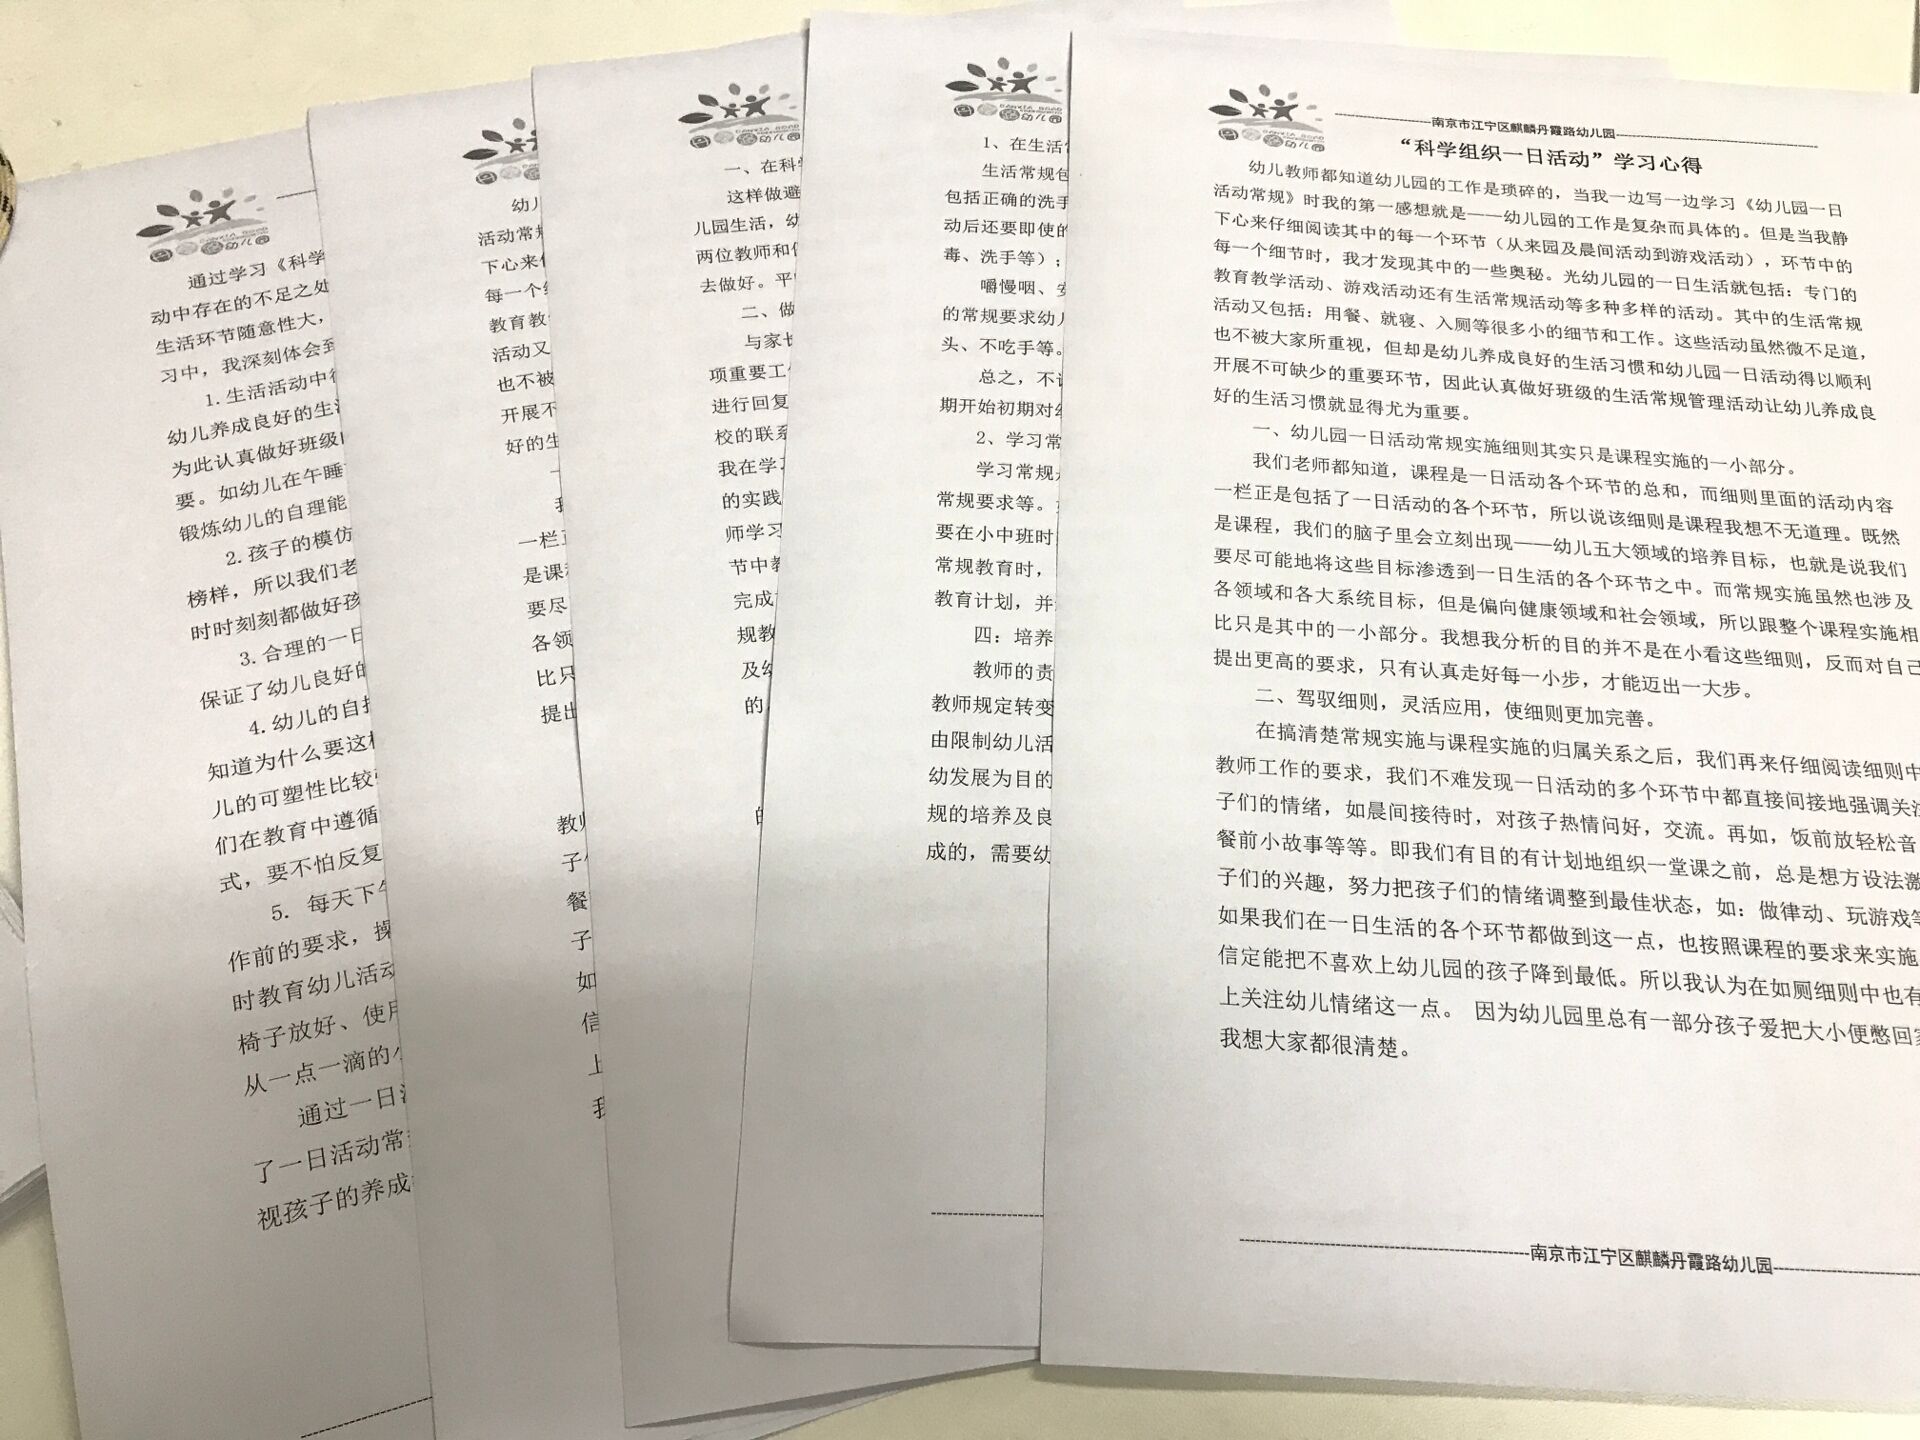 通过学习《科学
动中存在的不足之处
生活环节随意性大，
习中，我深刻体会到
1.生活活动中
幼儿养成良好的生
为此认真做好班级
要。如幼儿在午睡
锻炼幼儿的自理能
2.孩子的模仿
榜样，所以我们老
时时刻刻都做好孩
3.合理的一日
保证了幼儿良好的
4.幼儿的自
知道为什么要这
儿的可塑性比较
们在教育中遵循
式，要不怕反复
5. 每天下
作前的要求，操
时教育幼儿活动
椅子放好、使用
从一点一滴的
通过一日
了一日活动常
视孩子的养成
幼
活动常
下心来
每一个
教育教
活动又
也不被
开展不
好的生
一栏
是课
要尽
各领
比只
提出
教师
子
餐
子
如
信
上
我
一、在科
这样做避
儿园生活，幼
两位教师和
去做好。平
二、做
与家长
项重要工
进行回复
校的联系
我在学习
的实践
师学习
节中教
完成
规教
及幼
的
1、在生活
生活常规包
包括正确的洗手
动后还要即使的
毒、洗手等）；
嚼慢咽、安
的常规要求幼儿
头、不吃手等。
总之，不
期开始初期对
2、学习常
学习常规
常规要求等。
要在小中班时
常规教育时，
教育计划，并
四：培养
教师的责
教师规定转变
由限制幼儿活
幼发展为目的
规的培养及良
成的，需要幼
南京市江宁区麒麟丹霞路幼儿园
“科学组织一日活动”学习心得
幼儿教师都知道幼儿园的工作是琐碎的，当我一边写一边学习《幼儿园一日
活动常规》时我的第一感想就是——幼儿园的工作是复杂而具体的。但是当我静
下心来仔细阅读其中的每一个环节（从来园及晨间活动到游戏活动），环节中的
每一个细节时，我才发现其中的一些奥秘。光幼儿园的一日生活就包括：专门的
教育教学活动、游戏活动还有生活常规活动等多种多样的活动。其中的生活常规
活动又包括：用餐、就寝、入厕等很多小的细节和工作。这些活动虽然微不足道，
也不被大家所重视，但却是幼儿养成良好的生活习惯和幼儿园一日活动得以顺利
开展不可缺少的重要环节，因此认真做好班级的生活常规管理活动让幼儿养成良
好的生活习惯就显得尤为重要。
一、幼儿园一日活动常规实施细则其实只是课程实施的一小部分。
我们老师都知道，课程是一日活动各个环节的总和，而细则里面的活动内容
一栏正是包括了一日活动的各个环节，所以说该细则是课程我想不无道理。既然
是课程，我们的脑子里会立刻出现——幼儿五大领域的培养目标，也就是说我们
要尽可能地将这些目标渗透到一日生活的各个环节之中。而常规实施虽然也涉及
各领域和各大系统目标，但是偏向健康领域和社会领域，所以跟整个课程实施相
比只是其中的一小部分。我想我分析的目的并不是在小看这些细则，反而对自己
提出更高的要求，只有认真走好每一小步，才能迈出一大步。
二、驾驭细则，灵活应用，使细则更加完善。
在搞清楚常规实施与课程实施的归属关系之后，我们再来仔细阅读细则中
教师工作的要求，我们不难发现一日活动的多个环节中都直接间接地强调关注
子们的情绪，如晨间接待时，对孩子热情问好，交流。再如，饭前放轻松音
餐前小故事等等。即我们有目的有计划地组织一堂课之前，总是想方设法激
子们的兴趣，努力把孩子们的情绪调整到最佳状态，如：做律动、玩游戏等
如果我们在一日生活的各个环节都做到这一点，也按照课程的要求来实施
信定能把不喜欢上幼儿园的孩子降到最低。所以我认为在如厕细则中也有
上关注幼儿情绪这一点。 因为幼儿园里总有一部分孩子爱把大小便憋回家
我想大家都很清楚。
南京市江宁区麒麟丹霞路幼儿园